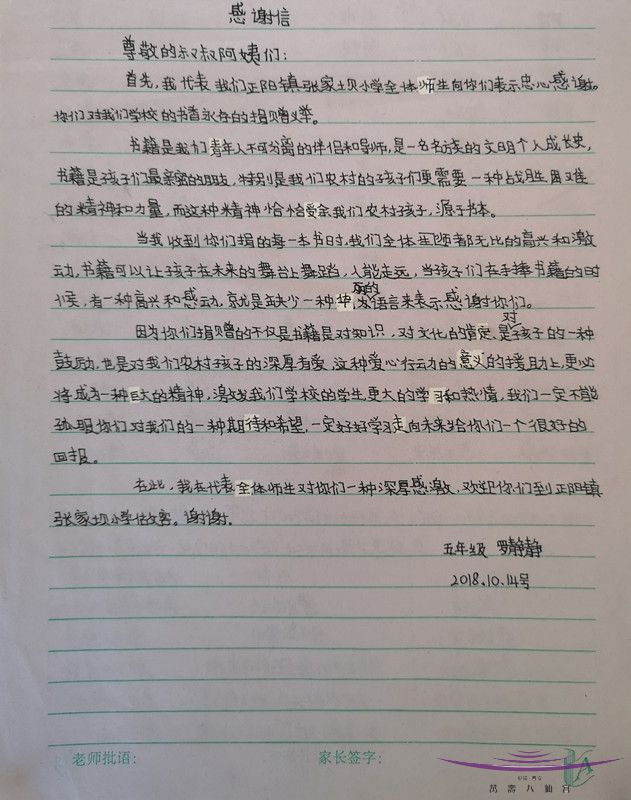 感谢信
尊敬的叔叔阿姨们:
首先,我代表我们正阳镇张家坝小学全体师生向你们表示忠心感谢。
你们对我们学校的书香永存的捐赠义举。
书籍是我们青年人不可分离的伴侣和导师,是一名名族的文明个人成长史,
书籍是孩子们最亲密的朋友,特别是我们农村的孩子们更需要一种战胜困难
的精神和力量,而这种精神恰恰受余我们农村孩子,源于书本。
当我收到你们捐的每一本书日时,我们全体师都无比的高兴和激
动,书籍可以让孩子在未来的舞台上舞蹈,人能走远,当孩子们在手捧书籍的时
候,有一种高兴和感动,就是缺少一种华发语言来表示感谢你们。
对
因为你们捐赠的不仅是书籍是对知识,对文化的肯定,是孩子的一种
鼓励,也是对我们农村孩子的深厚有爱,这种爱心行动的意义的援助上,更必
将成为一种巨大的精神,激发我们学校的学生更大的学习和热情,我们一定不能
你们对我们的一种期待和希望,一定好好学习走向未来给你们一个很好的
回报。
在此,我在代表全体师生对你们一种深厚感激,欢迎你们到正阳镇
张家坝小学做客。谢谢。
五年级 罗静静
2018.10.14号
老师批语: 家长签字:
中国·西安
萬壽八仙宮